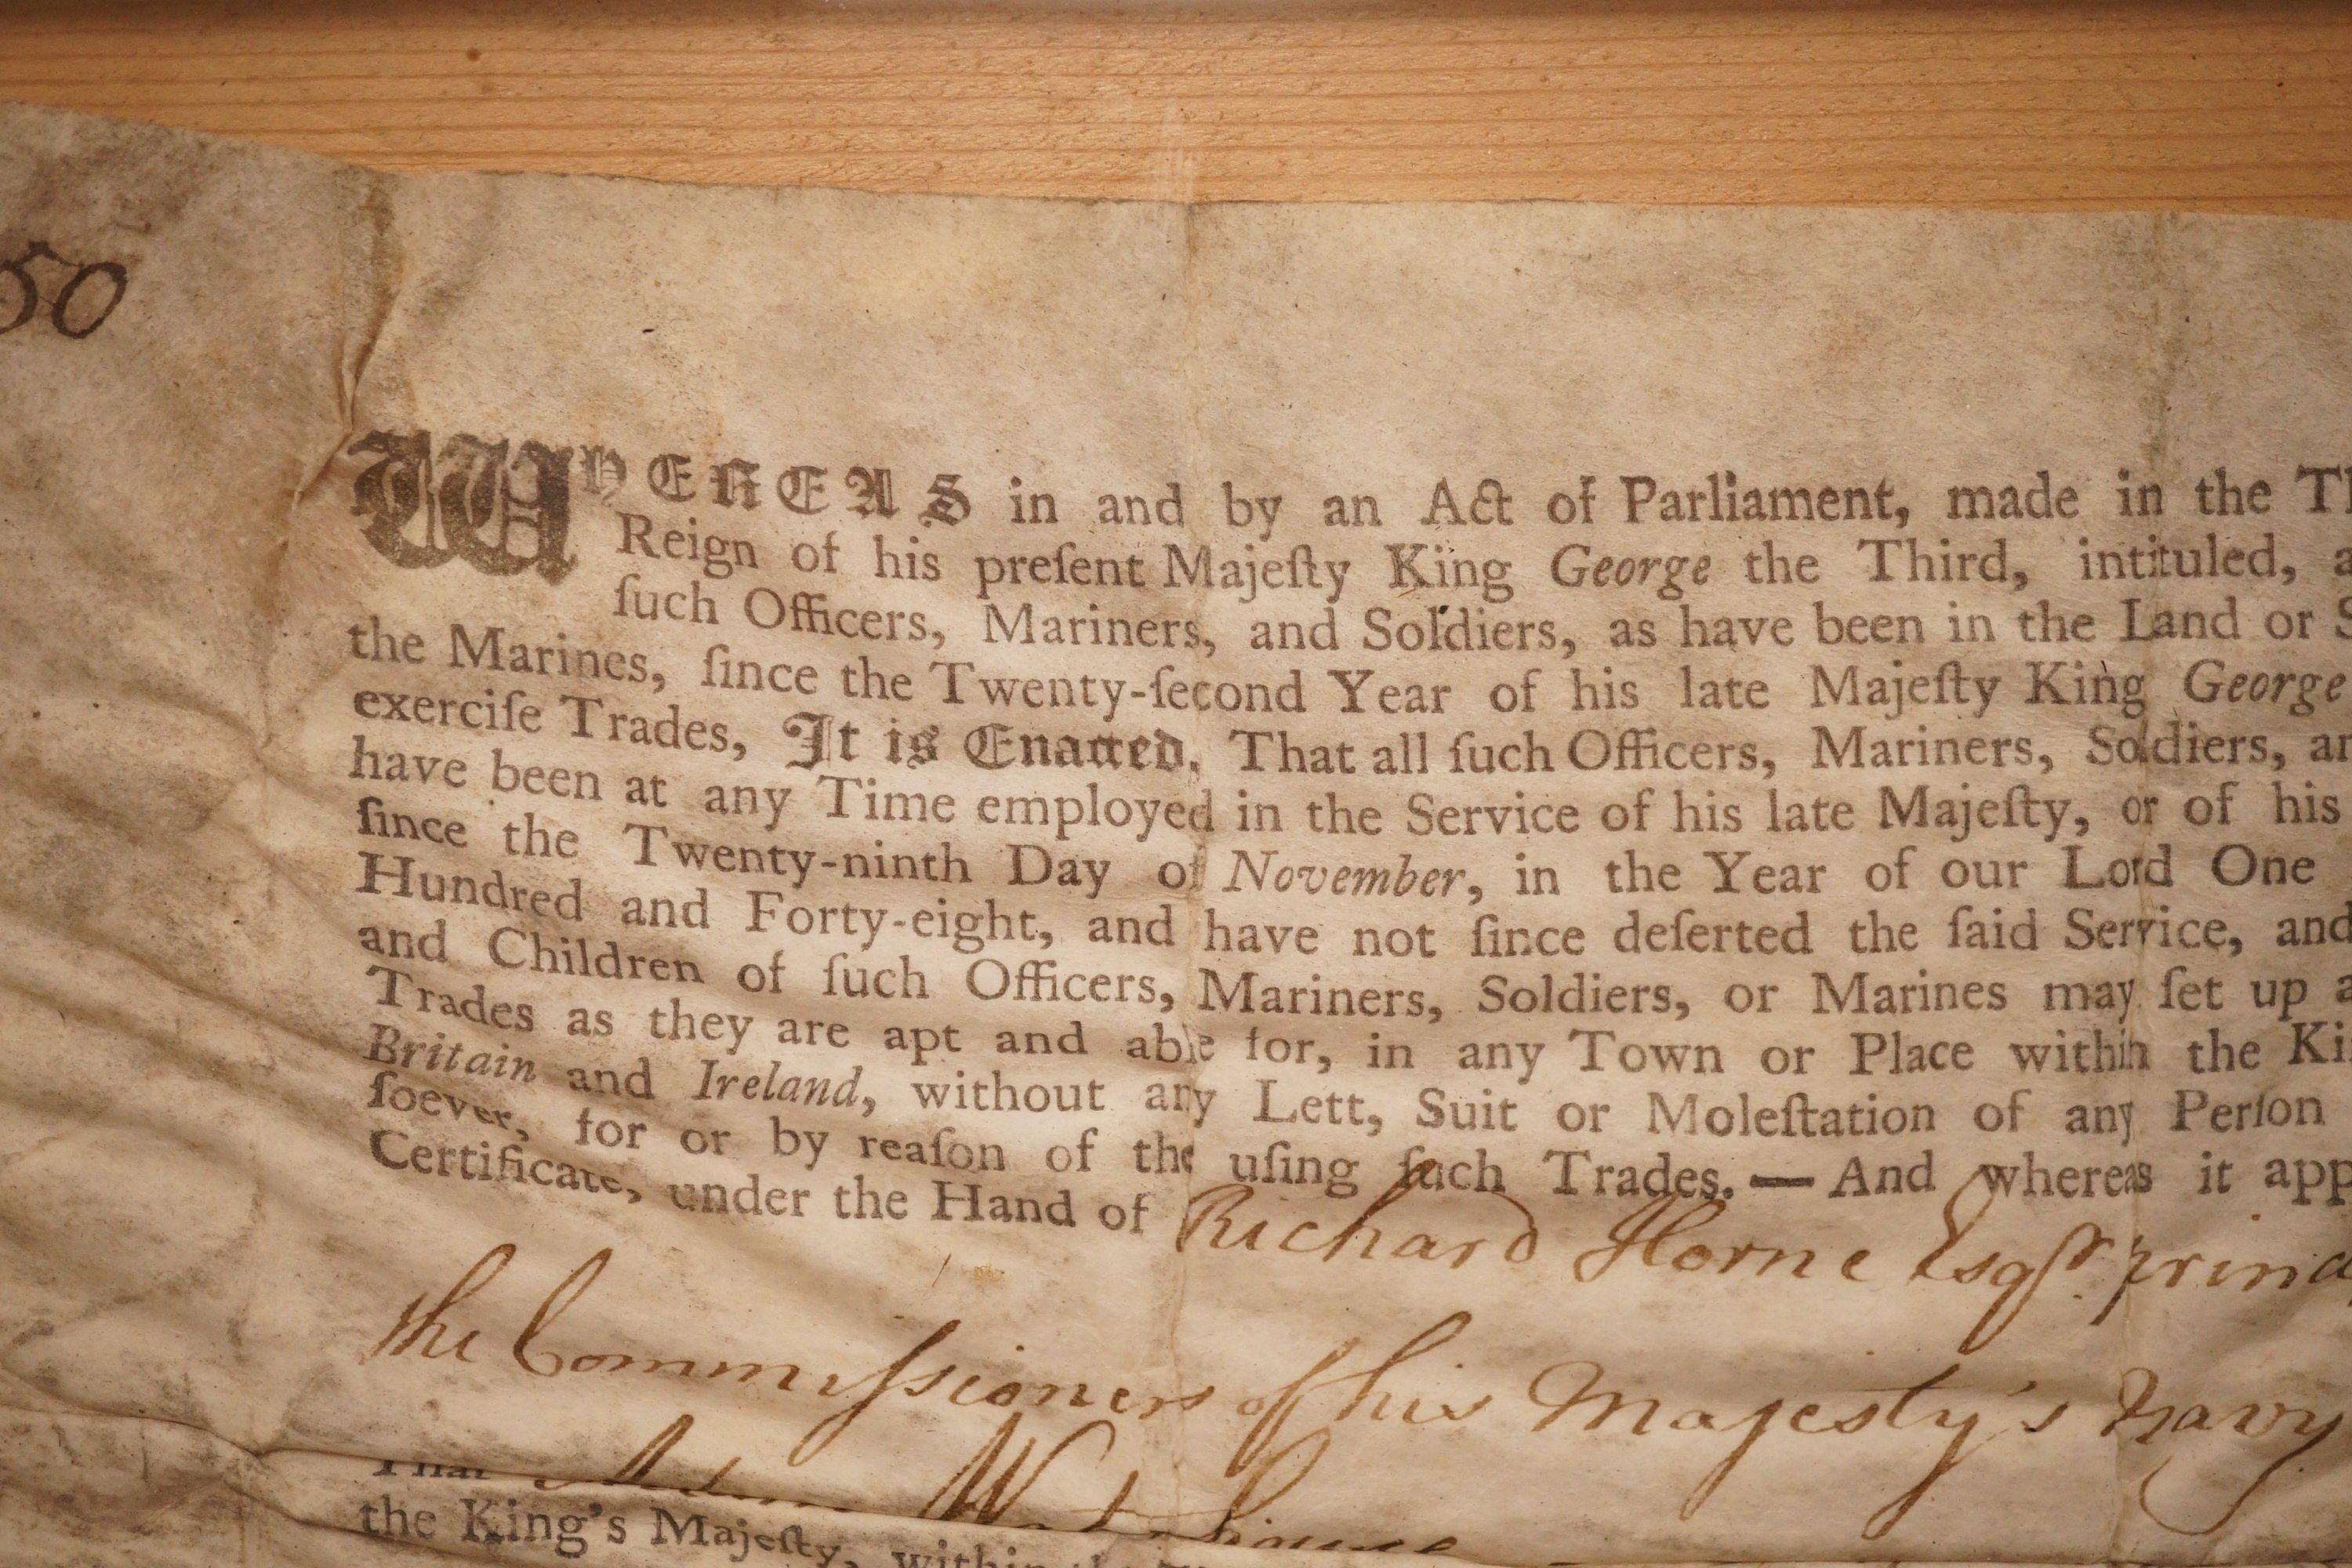 50
WHEREAS in and by an Act of Parliament, made in the Th
Reign of his preſent Majeſty King George the Third, intituled, a
ſuch Officers, Mariners, and Soldiers, as have been in the Land or S
the Marines, ſince the Twenty-ſecond Year of his late Majeſty King George
exerciſe Trades, It is Enacted, That all ſuch Officers, Mariners, Soldiers, an
have been at any Time employed in the Service of his late Majeſty, or of his
ſince the Twenty-ninth Day of November, in the Year of our Lord One
Hundred and Forty-eight, and have not ſince deſerted the ſaid Service, and
and Children of ſuch Officers, Mariners, Soldiers, or Marines may ſet up a
Trades as they are apt and able for, in any Town or Place within the Ki
Britain and Ireland, without any Lett, Suit or Moleſtation of any Perſon
ſoever, for or by reaſon of the uſing ſuch Trades. — And whereas it app
Certificate, under the Hand of Richard Horne Esqr. princ
the Commiſsioners of his Majesty's Navy
That
the King's Majeſty, within the